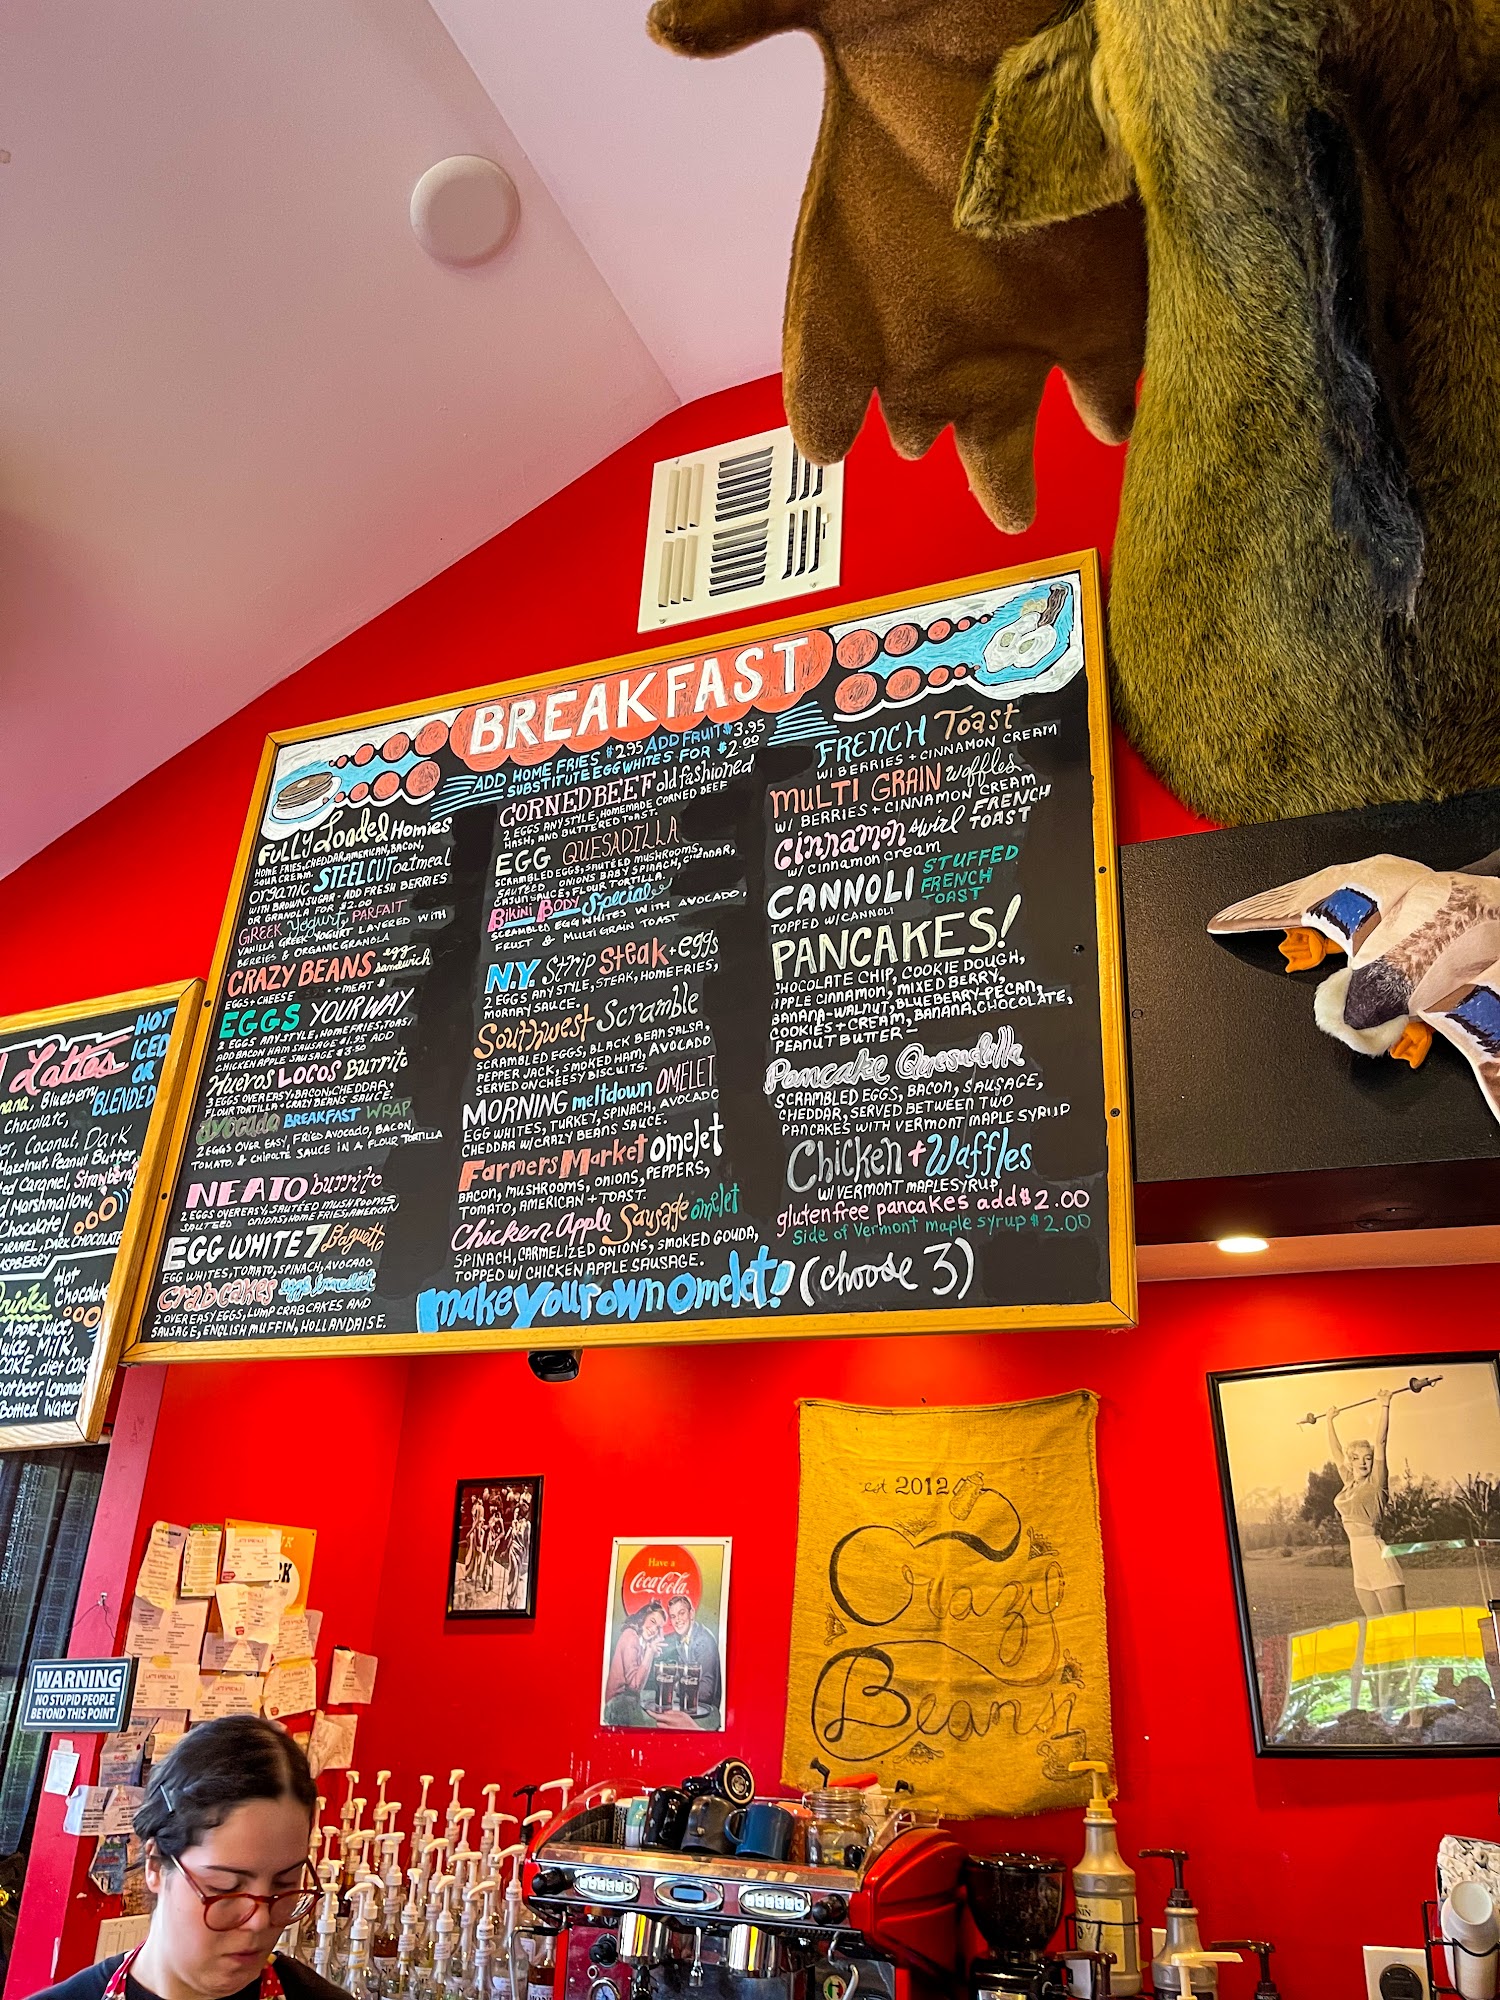 BREAKFAST
ADD HOME FRIES $2.95 ADD FRUIT $3.95
SUBSTITUTE EGG WHITES FOR $2.00
FULLY Loaded Homies
HOME FRIES, CHEDDAR, AMERICAN, BACON,
SOUR CREAM.
organic STEEL CUT oatmeal
WITH BROWN SUGAR - ADD FRESH BERRIES
OR GRANOLA FOR $2.00
GREEK Yogurt PARFAIT
VANILLA GREEK YOGURT LAYERED WITH
BERRIES & ORGANIC GRANOLA
CRAZY BEANS egg sandwich
EGGS + CHEESE + MEAT
EGGS YOUR WAY
2 EGGS ANY STYLE, HOME FRIES, TOAST
ADD BACON HAM SAUSAGE $1.95 ADD
CHICKEN APPLE SAUSAGE $3.50
Huevos LOCOS Burrito
3 EGGS OVER EASY, BACON, CHEDDAR,
FLOUR TORTILLA + CRAZY BEANS SAUCE.
Avocado BREAKFAST WRAP
2 EGGS OVER EASY, FRIED AVOCADO, BACON,
TOMATO, & CHIPOLTE SAUCE IN A FLOUR TORTILLA
NEATO burrito
2 EGGS OVER EASY, SAUTÉED MUSHROOMS
SAUTEED ONIONS, HOME FRIES, AMERICAN
EGG WHITE 7 Baguette
EGG WHITES, TOMATO, SPINACH, AVOCADO
Crabcakes eggs benedict
2 OVER EASY EGGS, LUMP CRABCAKES AND
SAUSAGE, ENGLISH MUFFIN, HOLLANDAISE.
CORNED BEEF old fashioned
2 EGGS ANY STYLE, HOMEMADE CORNED BEEF
HASH, AND BUTTERED TOAST.
EGG QUESADILLA
SCRAMBLED EGGS, SAUTÉED MUSHROOMS,
SAUTEED ONIONS BABY SPINACH, CHEDDAR,
CAJUN SAUCE, FLOUR TORTILLA.
Bikini Body Special
SCRAMBLED EGG WHITES WITH AVOCADO,
FRUIT & MULTI GRAIN TOAST
N.Y. Strip Steak + eggs
2 EGGS ANY STYLE, STEAK, HOME FRIES,
MORNAY SAUCE.
Southwest Scramble
SCRAMBLED EGGS, BLACK BEAN SALSA,
PEPPER JACK, SMOKED HAM, AVOCADO
SERVED ON CHEESY BISCUITS.
MORNING meltdown OMELET
EGG WHITES, TURKEY, SPINACH, AVOCADO
CHEDDAR W/CRAZY BEANS SAUCE.
Farmers Market omelet
BACON, MUSHROOMS, ONIONS, PEPPERS,
TOMATO, AMERICAN + TOAST.
Chicken Apple Sausage omelet
SPINACH, CARMELIZED ONIONS, SMOKED GOUDA,
TOPPED W/ CHICKEN APPLE SAUSAGE.
make your own Omelet! (choose 3)
FRENCH Toast
W/ BERRIES + CINNAMON CREAM
MULTI GRAIN waffles
W/ BERRIES + CINNAMON CREAM
Cinnamon swirl FRENCH TOAST
W/ Cinnamon cream
CANNOLI STUFFED FRENCH TOAST
TOPPED W/ CANNOLI
PANCAKES!
CHOCOLATE CHIP, COOKIE DOUGH,
APPLE CINNAMON, MIXED BERRY,
BANANA-WALNUT, BLUEBERRY-PECAN,
COOKIES + CREAM, BANANA, CHOCOLATE,
PEANUT BUTTER
Pancake Quesadilla
SCRAMBLED EGGS, BACON, SAUSAGE,
CHEDDAR, SERVED BETWEEN TWO
PANCAKES WITH VERMONT MAPLE SYRUP
Chicken + Waffles
W/ VERMONT MAPLE SYRUP
gluten free pancakes add $2.00
Side of Vermont maple syrup $2.00
HOT
ICED
OR
BLENDED
Lattes
Blueberry
Chocolate,
Coconut, Dark
Hazelnut, Peanut Butter,
Caramel, Strawberry
Marshmallow,
Chocolate!
DARK CHOCOLATE
Drinks
Hot
Chocolate
Apple Juice,
Juice, Milk,
COKE, diet COKE
Lemonade
Bottled Water
WARNING
NO STUPID PEOPLE
BEYOND THIS POINT
Have a
Coca-Cola
est 2012
Crazy
Beans